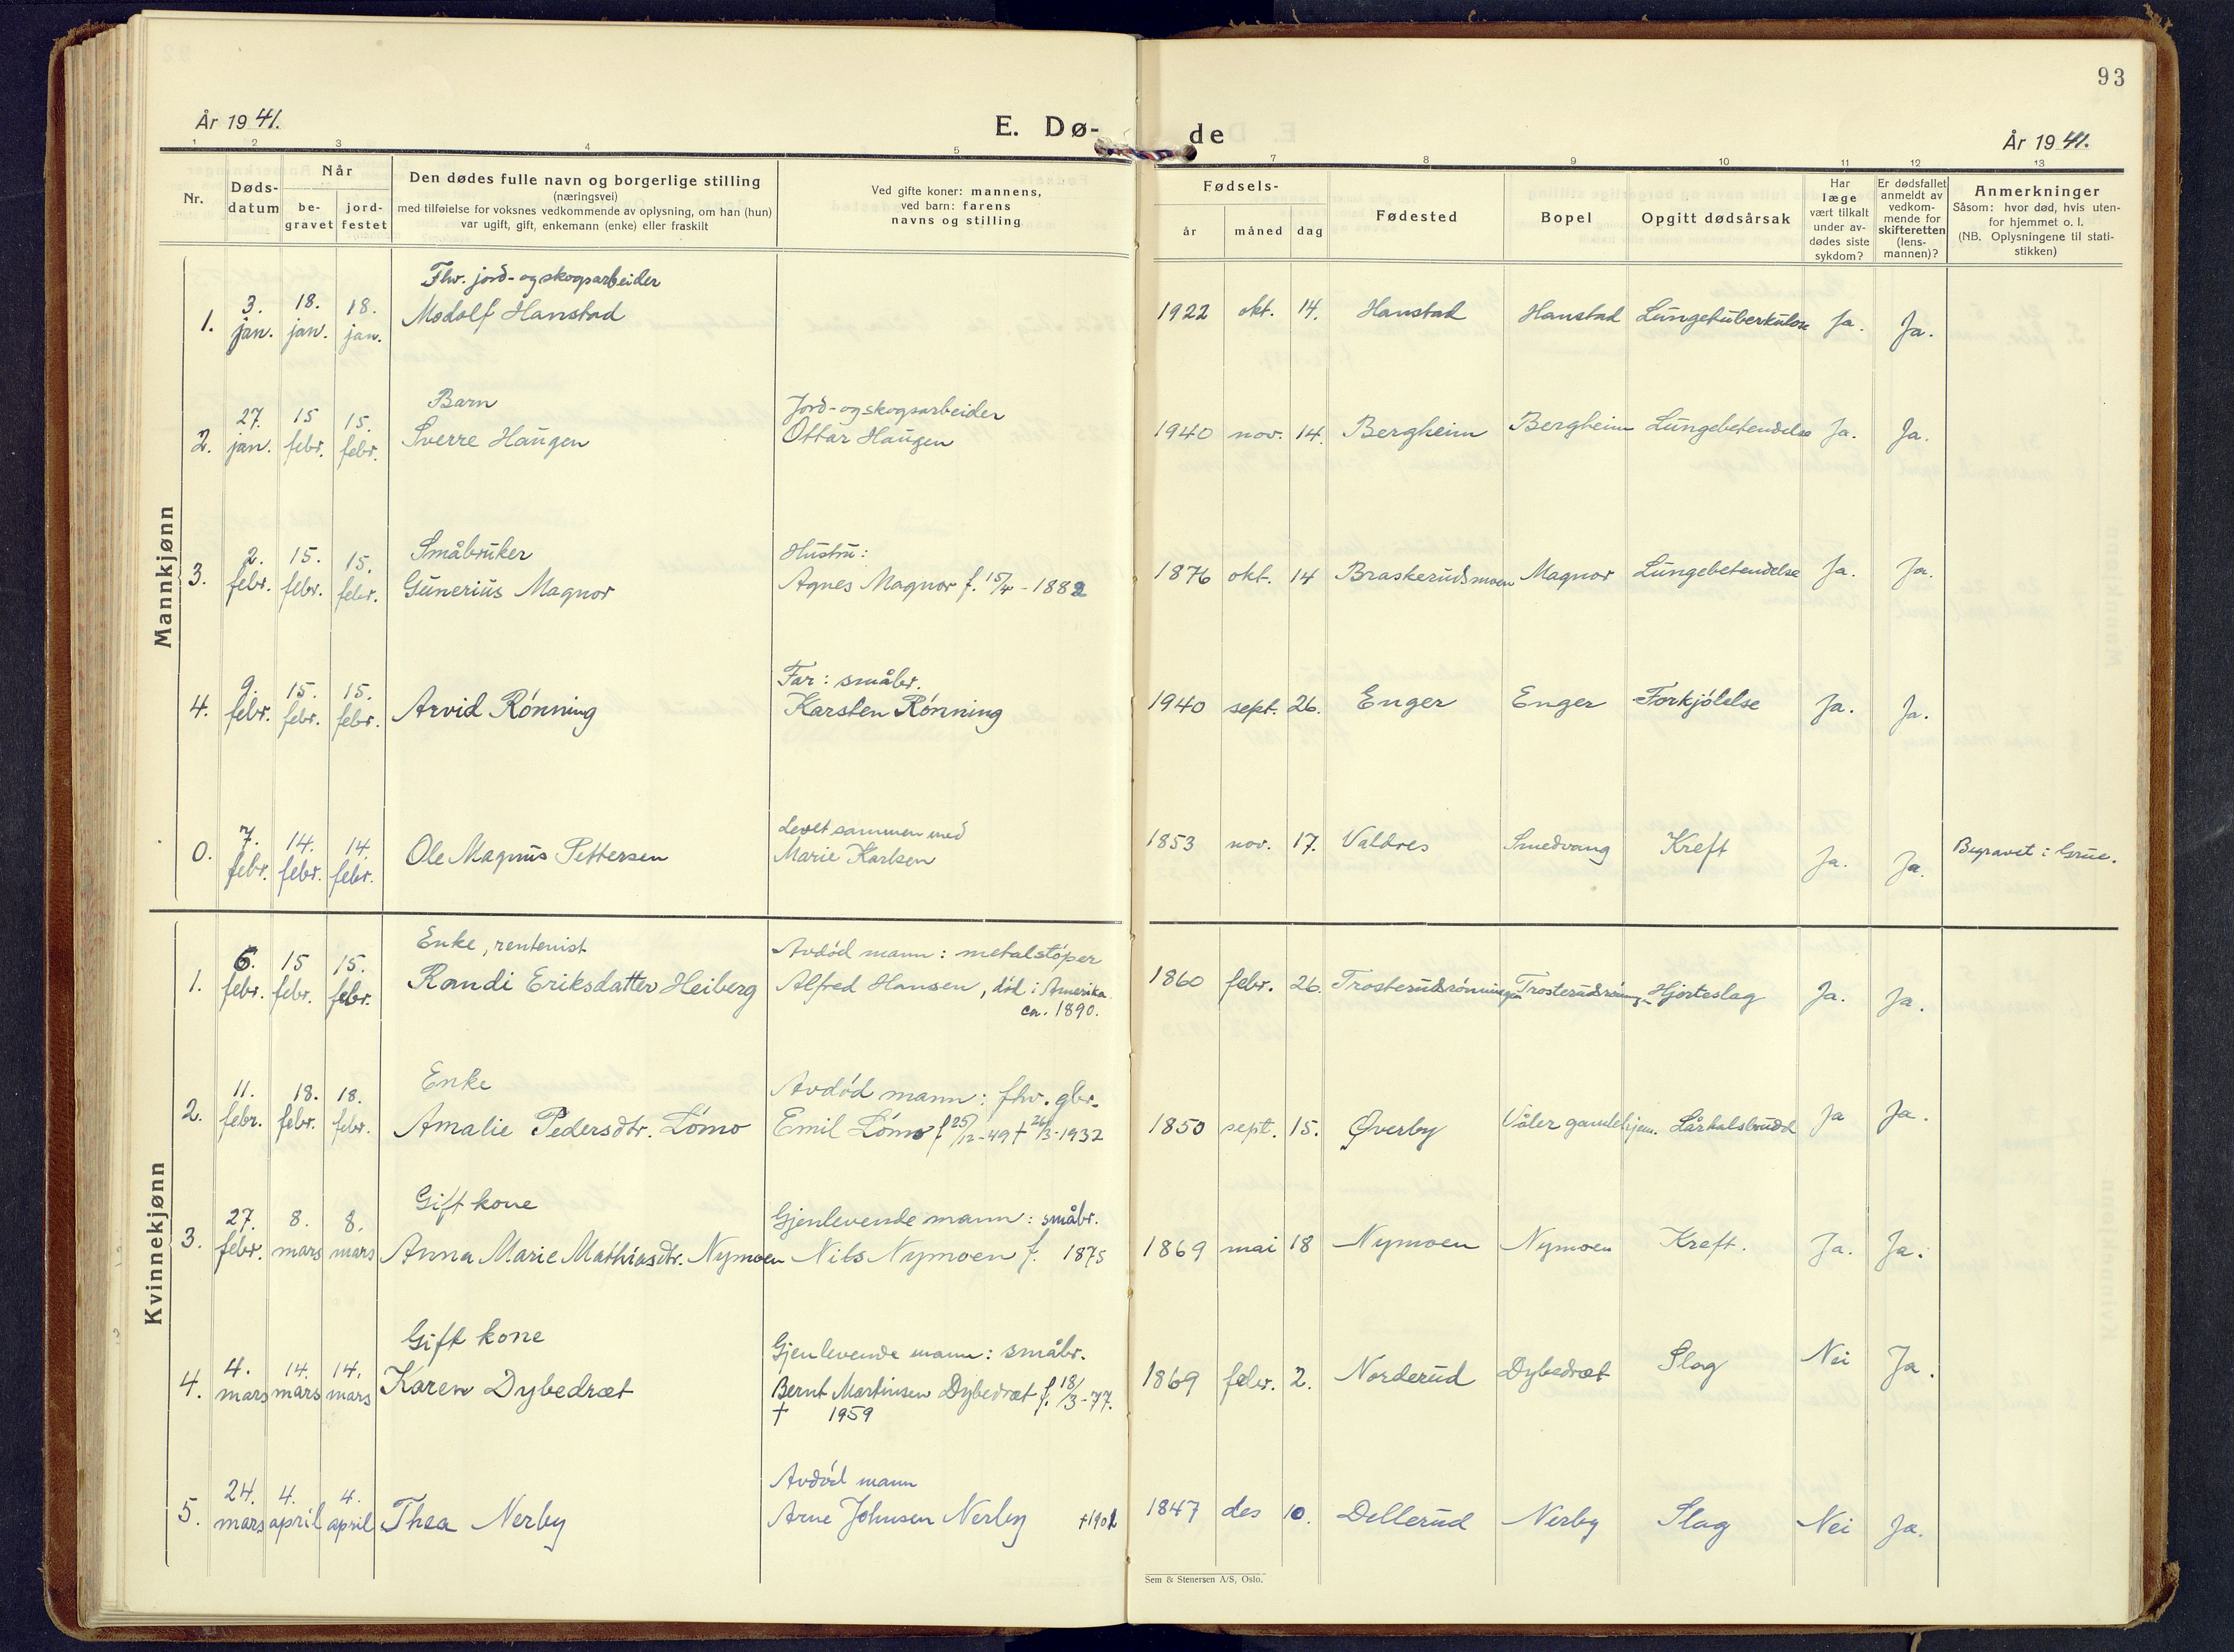 93
År 1941.
E. Dø-
de
År 1941.
1 2 3 4 5 7 8 9 10 11 12 13
Nr.
Døds-
datum
Når
be-
gravet
jord-
festet
Den dødes fulle navn og borgerlige stilling
(næringsvei)
med tilføielse for voksnes vedkommende av oplysning, om han (hun)
var ugift, gift, enkemann (enke) eller fraskilt
Ved gifte koner: mannens,
ved barn: farens
navns og stilling
Fødsels-
år måned dag
Fødested
Bopel
Opgitt dødsårsak
Har
læge
vært tilkalt
under av-
dødes siste
sykdom?
Er dødsfallet
anmeldt av
vedkom-
mende for
skifteretten
(lens-
mannen)?
Anmerkninger
Såsom: hvor død, hvis uten-
for hjemmet o. l.
(NB. Oplysningene til stati-
stikken)
Mannkjønn
Fhv. jord- og skogsarbeider
1. 3. jan. 18. jan. 18. jan. Modolf Hanstad 1922 okt. 14. Hanstad Hanstad Lungetuberkulose Ja. Ja.
Barn Jord- og skogsarbeider
2. 27. jan. 15 febr. 15. febr. Sverre Haugen Ottar Haugen 1940 nov. 14. Bergheim Bergheim Lungebetendelse Ja. Ja.
Småbruker Hustru:
3. 2. febr. 15. febr. 15. febr. Gunerius Magnor Agnes Magnor f. 15/4 - 1882 1876 okt. 14 Braskerudsmoen Magnor Lungebetendelse Ja. Ja.
Far: småbr.
4. 9. febr. 15. febr. 15. febr. Arvid Rønning Karsten Rønning 1940 sept. 26. Enger Enger Forkjølelse Ja. Ja.
Levet sammen med
0. 7. febr. 14. febr. 14. febr. Ole Magnus Pettersen Marie Karlsen 1853 nov. 17. Valdres Smedvang Kreft Ja. Ja. Begravet i Grue.
Kvinnekjønn
Enke, rentenist Avdød mann: metalstøper
1. 6. febr. 15 febr. 15. febr. Randi Eriksdatter Heiberg Alfred Hansen, død i Amerika 1860 febr. 26. Trosterudsrønningen Hjerteslag Ja. Ja.
ca. 1890.
Enke Avdød mann: fhv. gbr.
2. 11. febr. 18. febr. 18. febr. Amalie Pedersdtr. Lømo Emil Lømo f 25/12-49 + 24/3-1932 1850 sept. 15. Øverby Våler gamlehjem. Lårhalsbrudd Ja Ja.
Gift kone Gjenlevende mann: småbr.
3. 27. febr. 8. mars 8. mars Anna Marie Mathiasdtr. Nymoen Nils Nymoen f. 1875 1869 mai 18 Nymoen Nymoen Kreft. Ja. Ja.
Gift kone Gjenlevende mann: småbr.
4. 4. mars 14. mars 14. mars Karen Dybedræt Bernt Martinsen Dybedræt f. 18/3-77. 1869 febr. 2. Norderud Dybedræt Slag Nei Ja.
† 1959
Avdød mann
5. 24. mars 4. april 4. april Thea Nerby Arne Johnsen Nerby 1847 des 10. Dellerud Nerby Slag Nei Ja.
Sem & Stenersen A/S, Oslo.